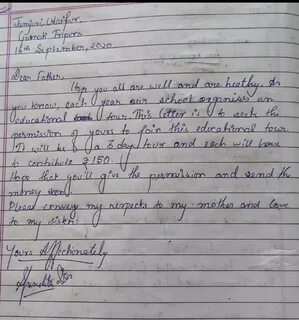 Jamjuri, Udaipur,
Gomati Tripura
16th September, 2020
Dear Father,
Hope you all are well and are heathy. As
you know, each year our school organises an
educational tour. This letter is to seek the
permission of yours to join this educational tour.
It will be of a 3 day tour and each will have
to contribute ₹150.
Hope that you'll give the permission and send the
money soon.
Please convey my respects to my mother and love
to my sister.
Yours Affectionately
Das